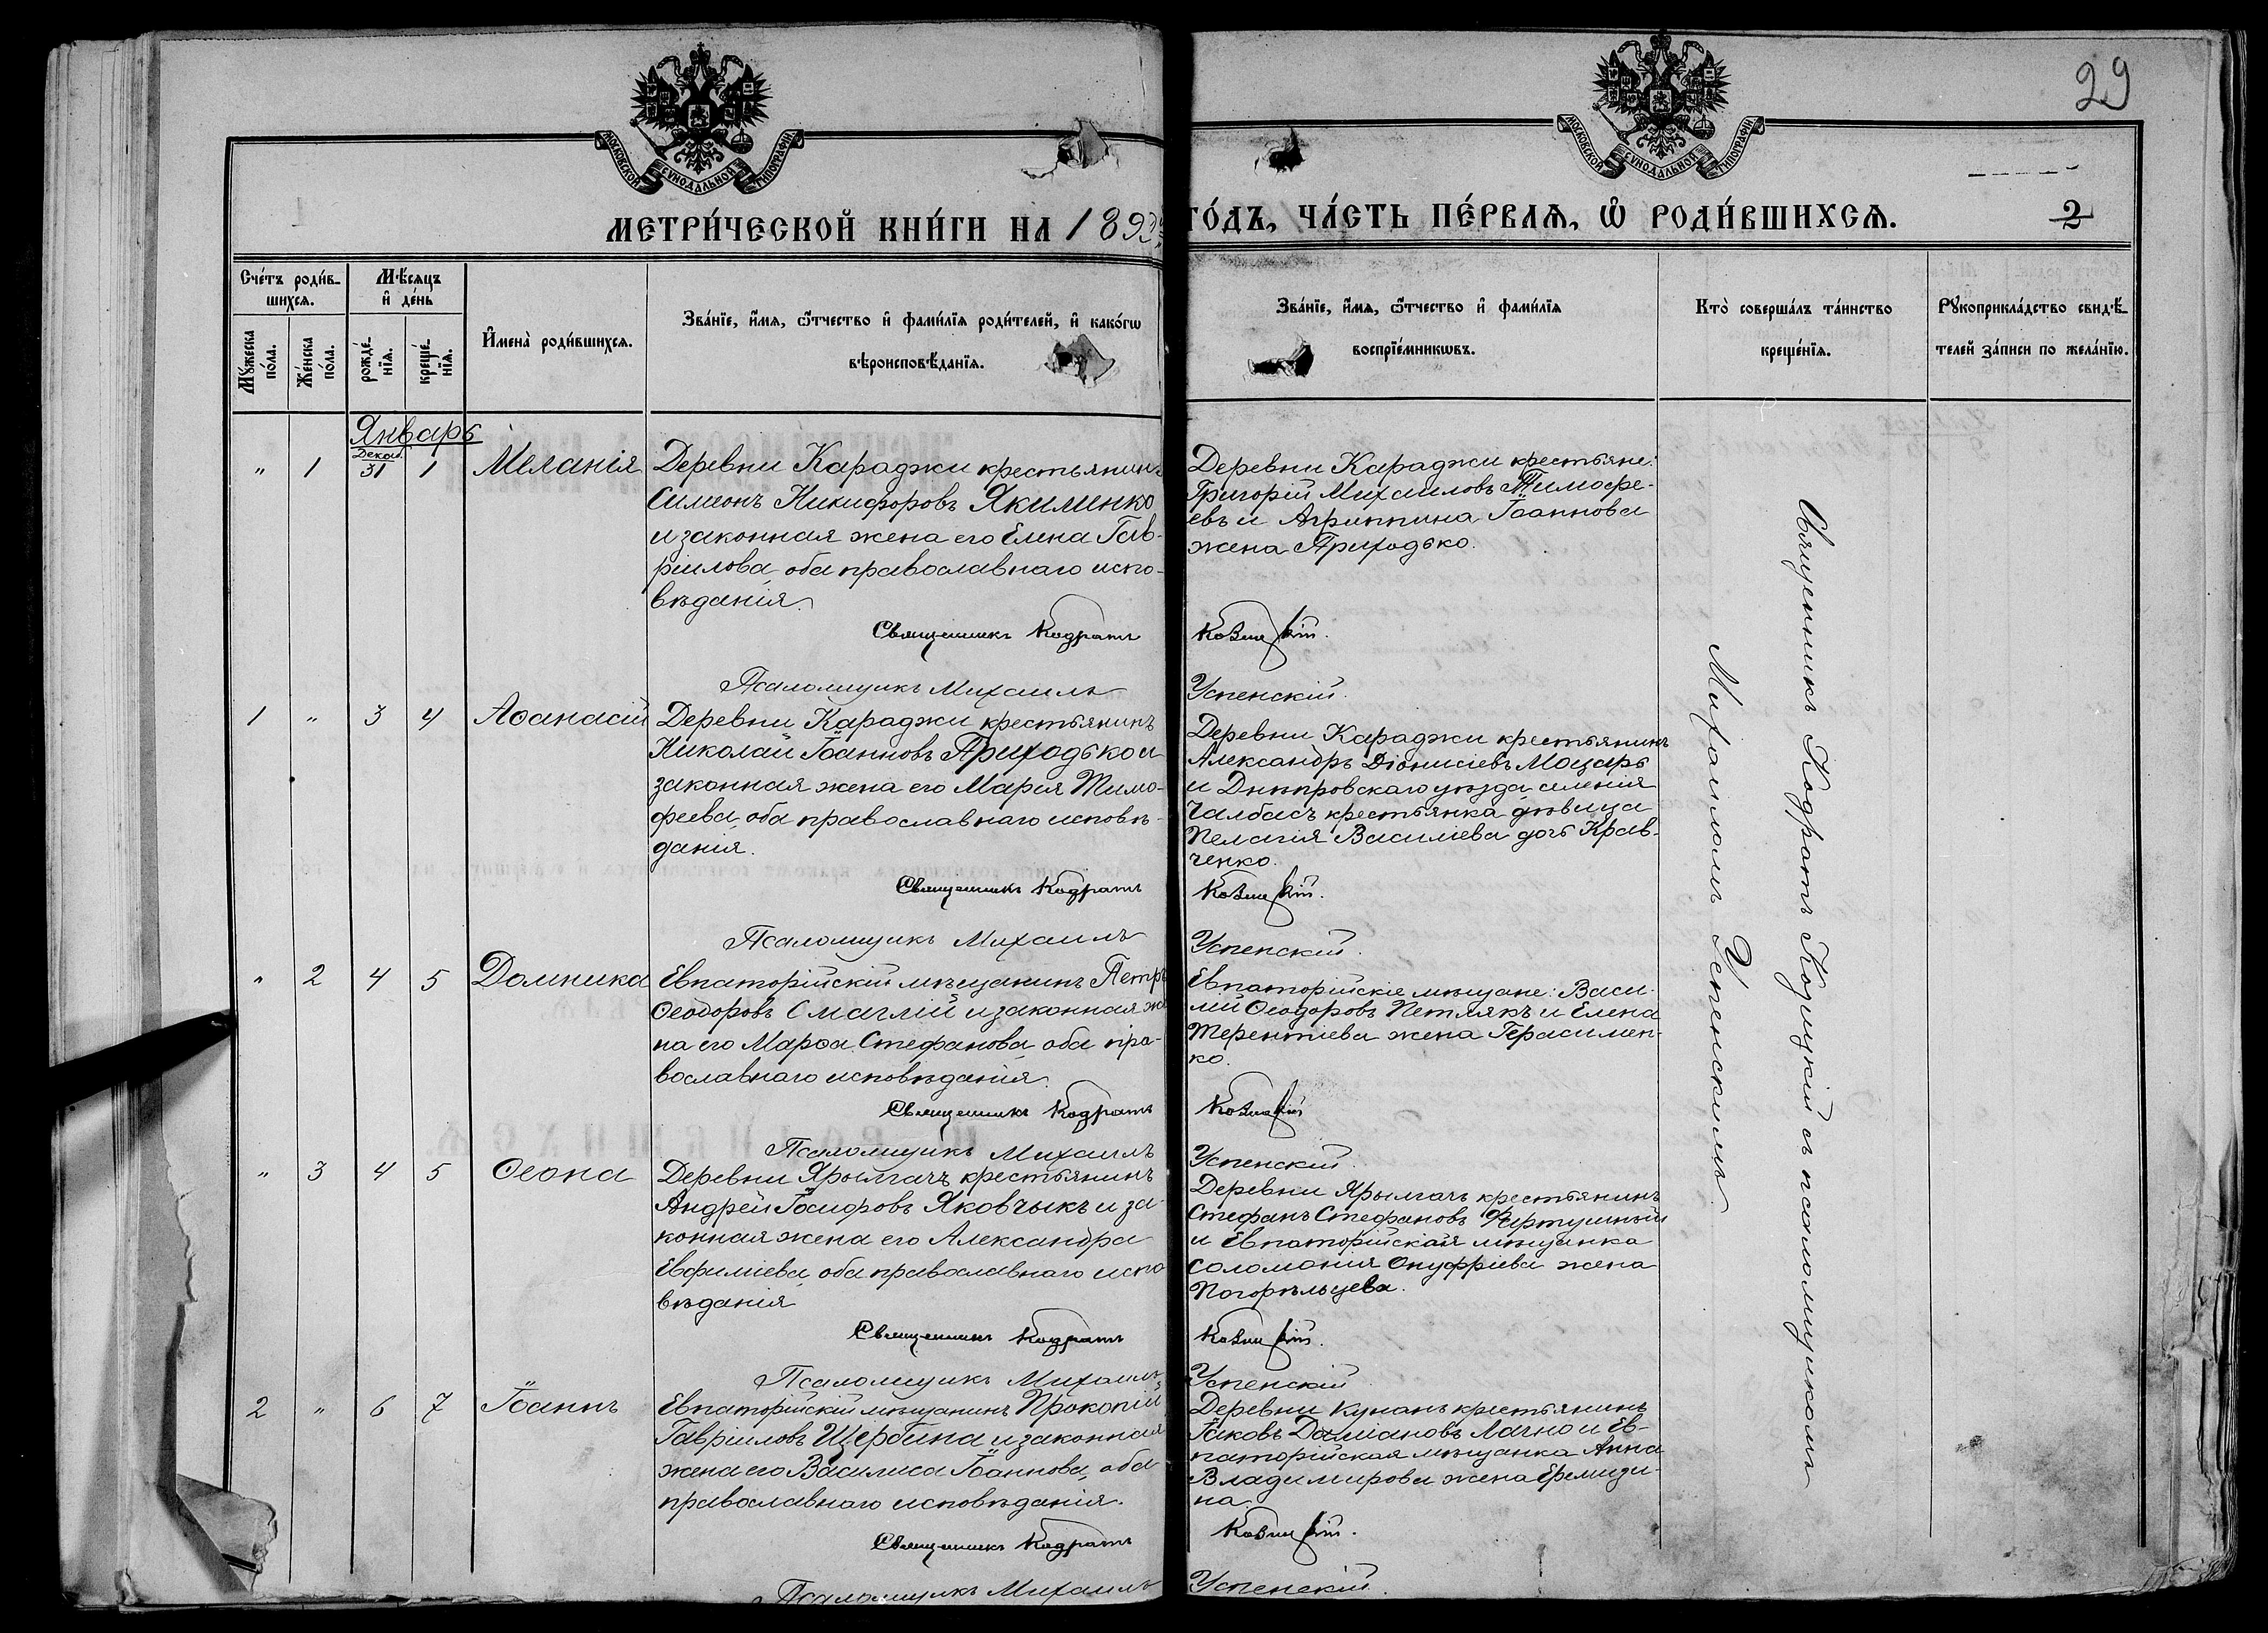 29
МОСКОВСКОЙ СѴНОДАЛЬНОЙ ТИПОГРАФІИ
МОСКОВСКОЙ СѴНОДАЛЬНОЙ ТИПОГРАФІИ
МЕТРИ́ЧЕСКОЙ КНИ́ГИ НА 1893
ГО́ДЪ, ЧА́СТЬ ПЕ́РВАѦ, Ѽ РОДИ́ВШИХСѦ.
2
Сче́тъ роди́в-
шихся.
Мѣ́сяцъ
и҆ де́нь
Мꙋ́жеска
по́ла.
Же́нска
по́ла.
рожде́-
нїя.
креще́-
нїя.
И҆мена̀ роди́вшихся.
Зва́нїе, и҆́мя, ѻ҆́тчество и҆ фами́лїя роди́телей, и҆ како́гѡ
вѣроисповѣ́данїя.
Зва́нїе, и҆́мя, ѻ҆́тчество и҆ фами́лїя
воспрїе́мникѡвъ.
Кто̀ соверша́лъ та́инство
креще́нїя.
Рꙋкоприкла́дство свидѣ́-
телей за́писи по жела́нїю.
Январь
Декаб.
" 1 31 1 Меланія
Деревни Караджи крестьянинъ
Симеонъ Никифоровъ Якименко
и законная жена его Елена Гав-
ріилова, оба православнаго испо-
вѣданія.
Священникъ Кодратъ
Псаломщикъ Михаилъ
Деревни Караджи крестьяне:
Григорій Михаиловъ Тимофе-
евъ и Агриппина Іоаннова
жена Приходько.
Козицкій.
Успенскій.
1 " 3 4 Аѳанасій
Деревни Караджи крестьянинъ
Николай Іоанновъ Приходько и
законная жена его Марія Тимо-
феева, оба православнаго исповѣ-
данія.
Священникъ Кодратъ
Псаломщикъ Михаилъ
Деревни Караджи крестьянинъ
Александръ Діонисіевъ Моцарь
и Днѣпровскаго уѣзда селенія
Чалбасъ крестьянка дѣвица
Пелагія Василіева дочь Крав-
ченко.
Козицкій.
Успенскій.
" 2 4 5 Домника
Евпаторійскій мѣщанинъ Петръ
Ѳеодоровъ Смаглій и законная же
на его Марѳа Стефанова, оба пра-
вославнаго исповѣданія.
Священникъ Кодратъ
Псаломщикъ Михаилъ
Евпаторійскіе мѣщане: Васи-
лій Ѳеодоровъ Петлякъ и Елена
Терентіева жена Герасимен-
ко.
Козицкій
Успенскій.
" 3 4 5 Ѳеона
Деревни Ярылгачъ крестьянинъ
Андрей Іосифовъ Яковчыкъ и за-
конная жена его Александра
Евфиміева, оба православнаго испо
вѣданія
Священникъ Кодратъ
Псаломщикъ Михаилъ
Деревни Ярылгачъ крестьянинъ
Стефанъ Стефановъ
и Евпаторійская мѣщанка
Соломонія Онуфріева жена
Погорѣльцева.
Козицкій.
Успенскій
2 " 6 7 Іоаннъ
Евпаторійскій мѣщанинъ Прокопій
Гавріиловъ Щербина и законная
жена его Василиса Іоаннова, оба
православнаго исповѣданія.
Священникъ Кодратъ
Псаломщикъ Михаилъ
Деревни Кунанъ крестьянинъ
Іаковъ Даміановъ Лагно и Ев-
паторійская мѣщанка Анна
Владимирова жена Еремизи-
на.
Козицкій.
Успенскій.
Священникъ Кодратъ Козицкій съ псаломщикомъ
Михаиломъ Успенскимъ